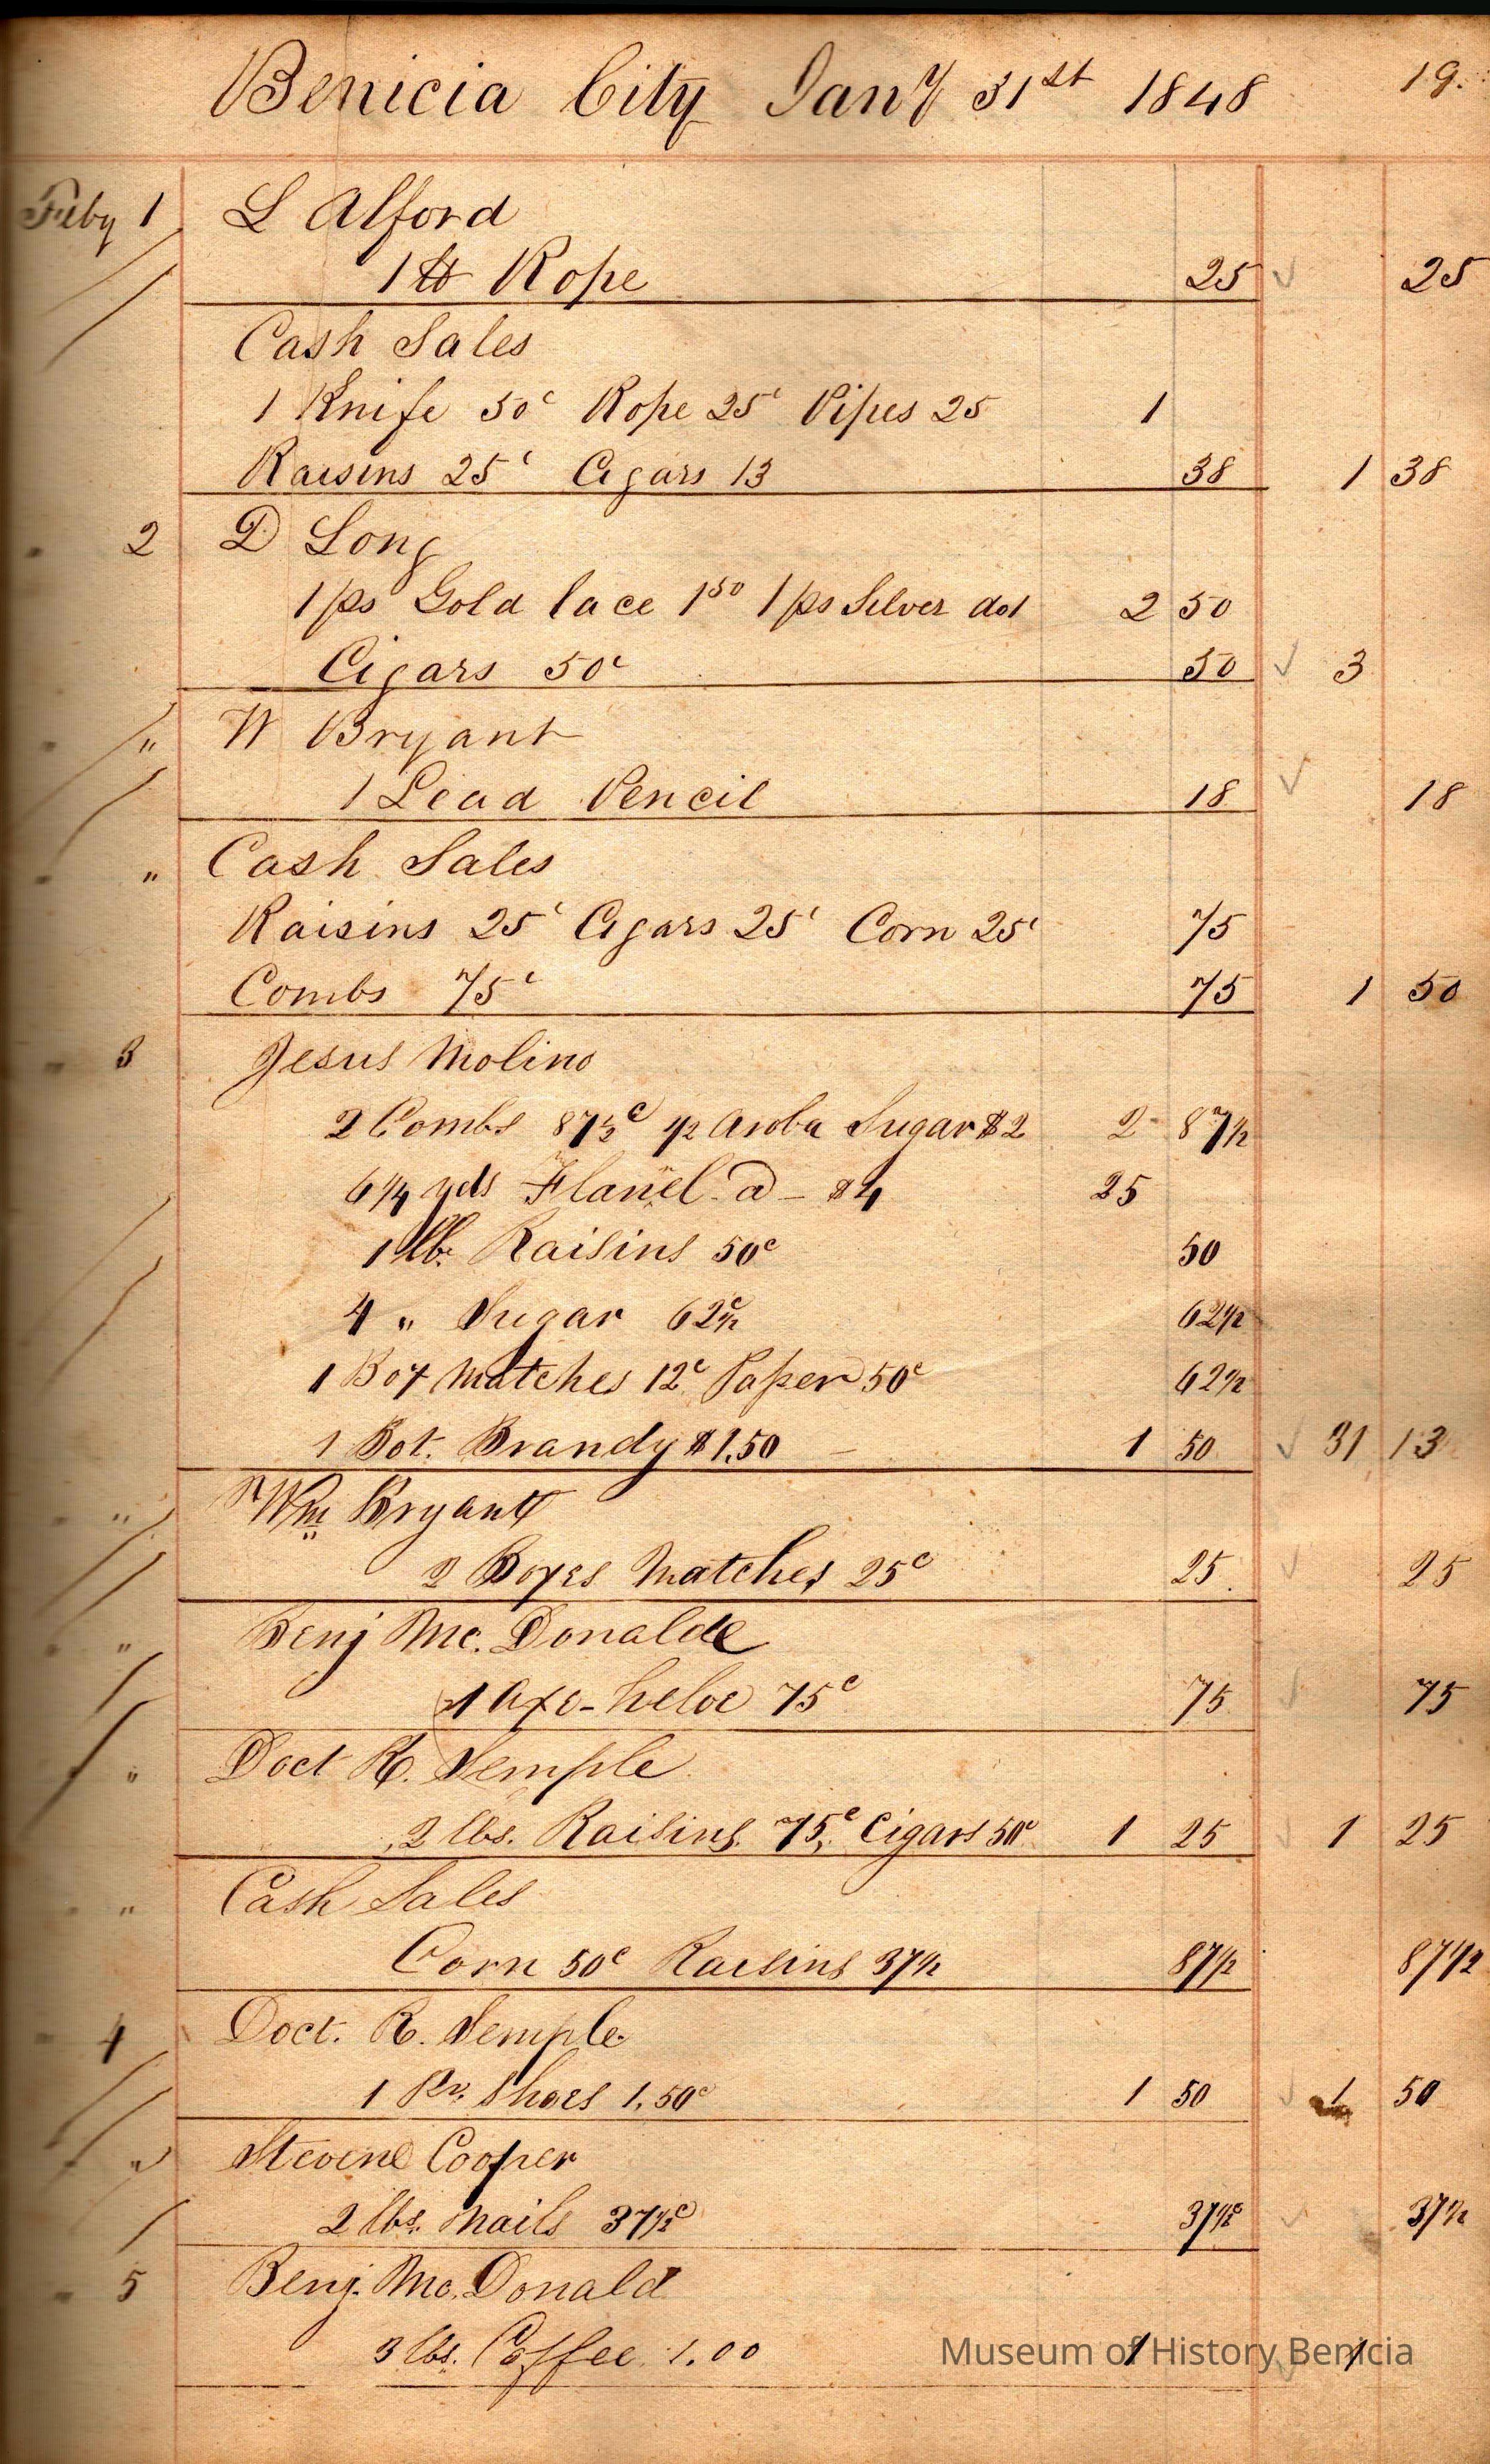 19.
Benicia City Jany 31st 1848
Feby 1 L Alford
1 lb Rope 25 ✓ 25
Cash Sales
1 Knife 50c Rope 25c Pipes 25 1
Raisins 25c Cigars 13 38 1 38
" 2 D Long
1 ps Gold lace 1 50 1 ps Silver do 1 2 50
Cigars 50c 50 ✓ 3
" " W Bryant
1 Lead Pencil 18 ✓ 18
" " Cash Sales
Raisins 25c Cigars 25c Corn 25c 75
Combs 75c 75 1 50
" 3 Jesus Molino
2 Combs 87½c ½ Aroba Sugar $2 2 87½
6¼ yds Flanel a - $4 25
1 lb. Raisins 50c 50
4 " Sugar 62½c 62½
1 Box Matches 12c Paper 50c 62½
1 Bot. Brandy $1.50 – 1 50 ✓ 31 13
" " Wm Bryant
2 Boxes Matches 25c 25. ✓ 25
" " Benj Mc. Donald
1 Axe-helve 75c 75 ✓ 75
" " Doct R. Semple
2 lbs. Raisins. 75c. Cigars 50c 1 25 ✓ 1 25
" " Cash Sales
Corn 50c Raisins 37½ 87½ 87½
" 4 Doct. R. Semple
1 Pr. Shoes 1.50c 1 50 ✓ 1 50
" " Steven Cooper
2 lbs. Nails 37½c 37½c ✓ 37½
" 5 Benj. Mc. Donald
3 lbs. Coffee 1.00 1 ✓ 1
Museum of History Benicia